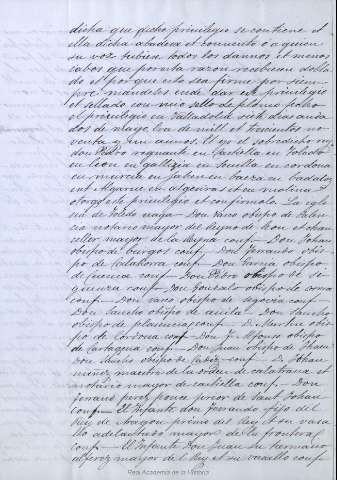 dicha que dicho privilegio se contiene et
ella dicha abadesa et conuento o a quien
su voz tubiese todos los dannos et menos
cabos que por esta razon recibiesen dobla
do et por que esto sea firme por siem
pre mandeles ende dar este privilegio
et sellado con mio sello de plomo fecho
el privilegio en Valladolid seis dias anda
dos de mayo Era de mill et trecientos no
venta y un annos. Et el sobredicho rey
don Pedro regnante en Castiella en Toledo
en leon en gallizia en Seuilla en cordoua
en murcia en Jahen en baeza en badaloz
en el Algarue en algecira et en molina
otorgo este privilegio et confirmolo. La egle
sia de Toledo vaga Don Vasco obispo de Palen
cia notario mayor del Reyno de leon et chan
celler mayor de la Reyna conf. Don Johan
obispo de burgos conf. Don Ferrando obis
po de Calahorra conf. Don Garcia obispo
de cuenca conf. Don Pedro obispo de Si
guenza conf. Don Gonzalo obispo de osma
conf. Don Vasco obispo de segovia conf
Don Sancho obispo de auila Don Sancho
obispo de plasencia conf. D. Martin obis
po de Cordoua conf. Don Alfonso obispo
de Cartagena conf. Don Juan obispo de Jahen
Don Sancho obispo de Cadiz conf. D. Johan
nuñez maestre de la orden de calatraua et
notario mayor de castiella conf. Don
ferrand perez ponce prior de Sant Johan
conf. El Infante don ferrando fijo del
Rey de Aragon primo del Rey et su vasa
llo adelantado mayor de la frontera
conf. El Infante Don Juan su hermano
alferez mayor del Rey et su vasallo conf
Real Academia de la Historia